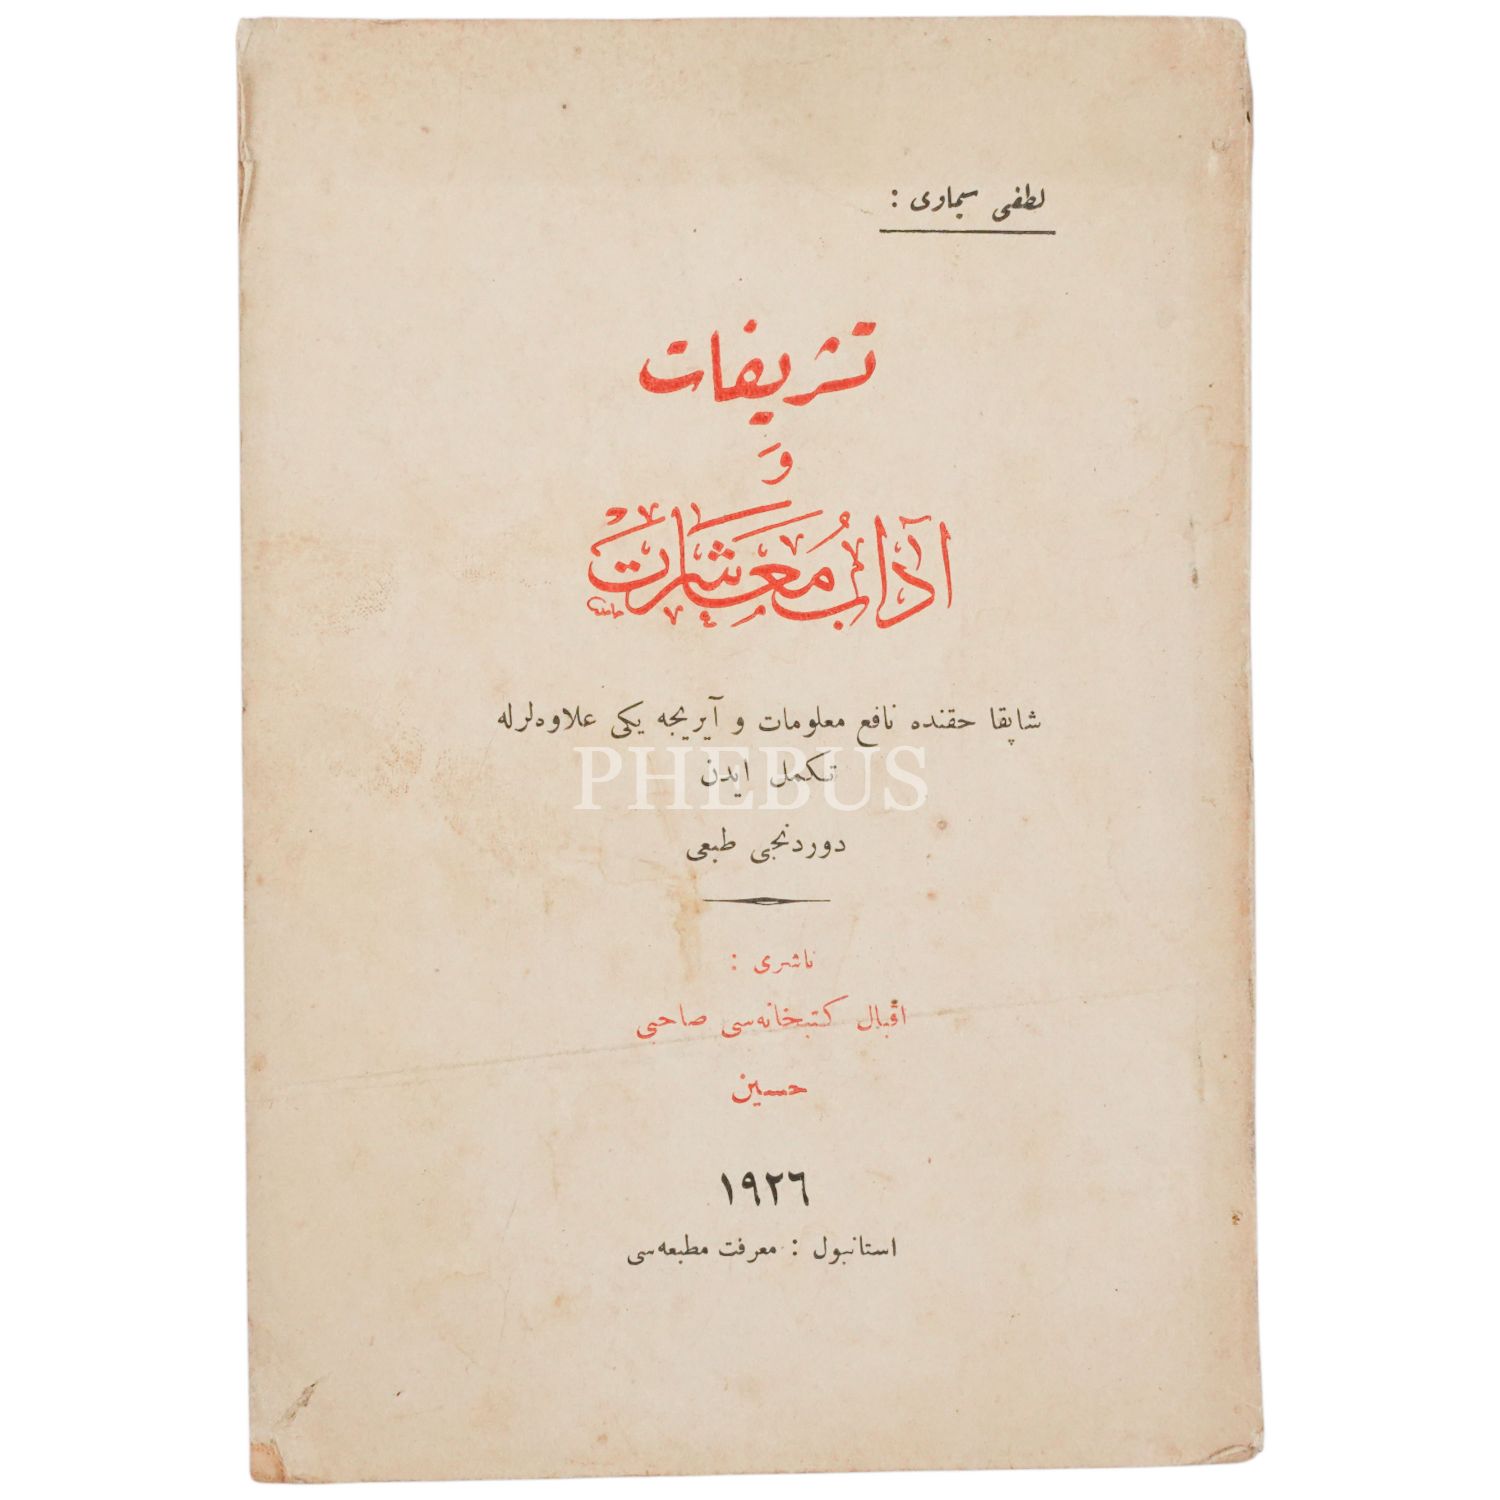 لطفی سیماوی :
تشریفات
وَ
آداب مُعَاشَرَت
شاپقا حقنده نافع معلومات و آیریجه یکی علاوه‌لرله
PHEBUS
تکمل ایدن
دوردنجی طبعی
ناشری :
اقبال کتبخانه‌سی صاحبی
حسین
۱۹۲٦
استانبول : معرفت مطبعه‌سی